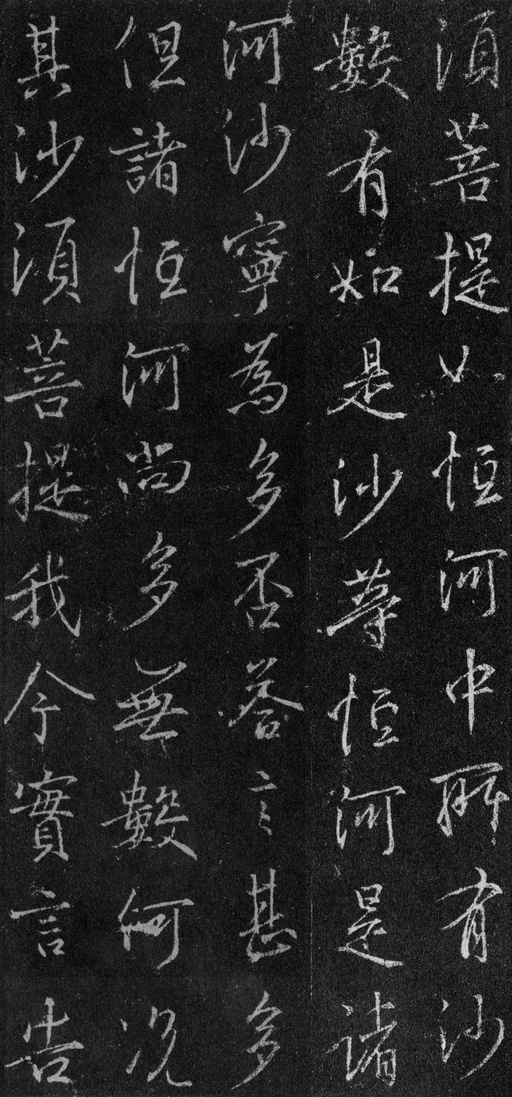 須菩提如恒河中所有沙
數有如是沙等恒河是諸
河沙寧為多否荅言甚多
但諸恒河尚多無數何况
其沙須菩提我今實言告